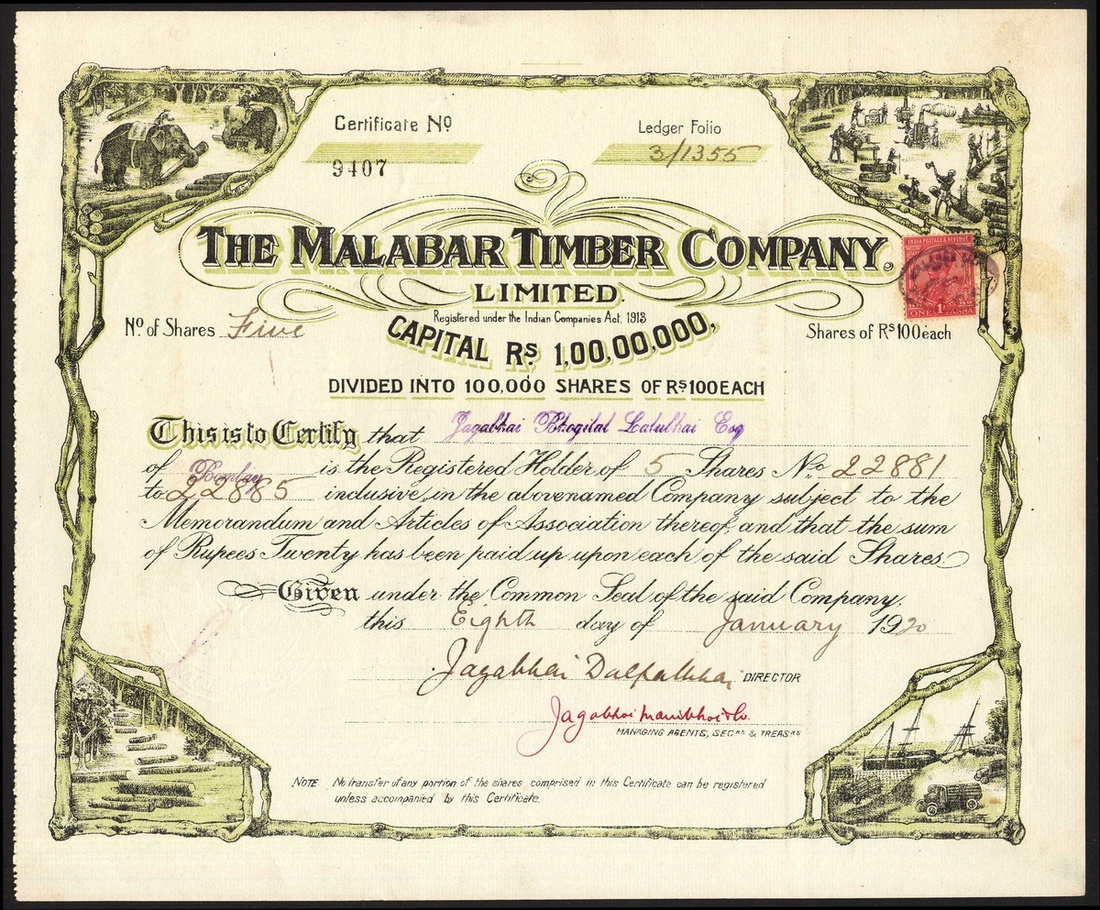 Certificate No
Ledger Folio
9407
3/1355
THE MALABAR TIMBER COMPANY.
LIMITED.
Registered under the Indian Companies Act, 1913
No. of Shares Five
Shares of Rs 100 each
CAPITAL Rs 1,00,00,000,
DIVIDED INTO 100,000 SHARES OF Rs 100 EACH
INDIA POSTAGE & REVENUE
ONE 1 ANNA
This is to Certify that Jagabhai Bhogilal Lalubhai Esq
of Bombay is the Registered Holder of 5 Shares No. 22881
to 22885 inclusive, in the abovenamed Company subject to the
Memorandum and Articles of Association thereof, and that the sum
of Rupees Twenty has been paid up upon each of the said Shares.
Given under the Common Seal of the said Company,
this Eighth day of January 1920
Jagabhai Dalpatbhai DIRECTOR
Jagabhai Manibhai & Co.
MANAGING AGENTS, SECRS & TREASRS
NOTE No transfer of any portion of the shares comprised in this Certificate can be registered
unless accompanied by this Certificate.